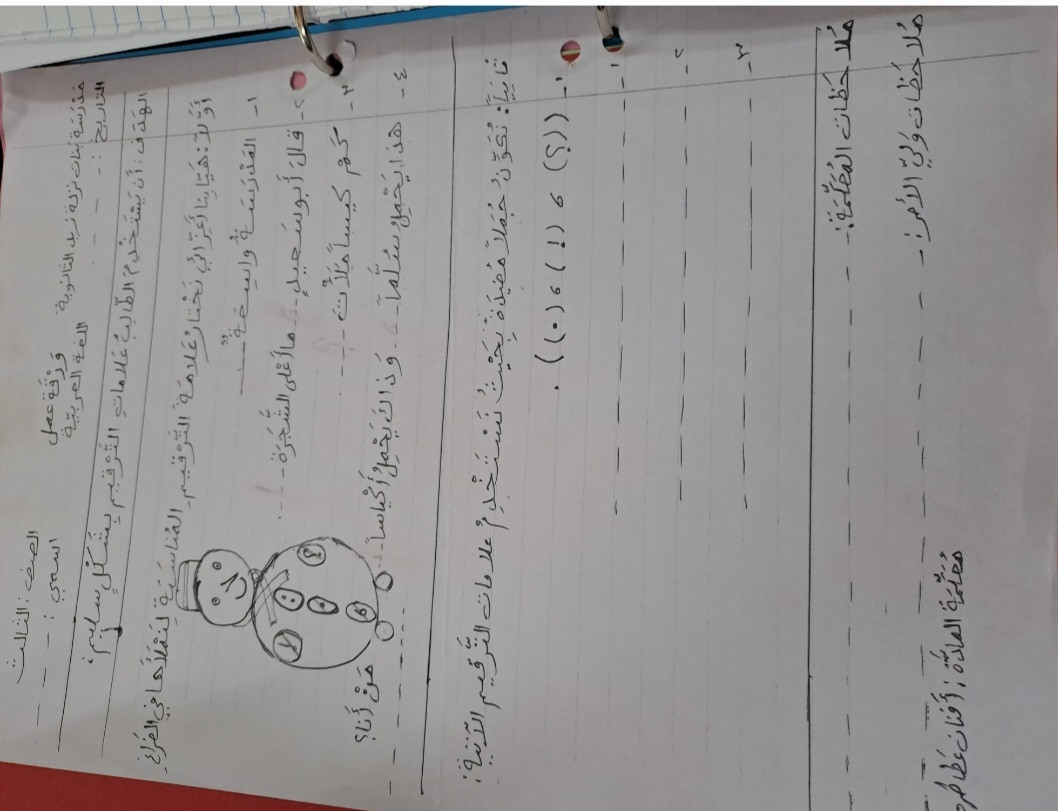 مَدْرَسَة بنات نزلة زيد الثانوية. وَرَقَة عمل الصف: الثالث
التاريخ: - - - - اللغة العربيّة اسمي: - - - -
الهَدَف: أن يَسْتَخْدِم الطّالِبُ عَلامات التَّرْقيم بِشَكْلٍ سليم:
أَوَّلاً: هَيّا بِنا أَعِزّائي نَخْتارُ عَلامَة التَّرْقيم المُناسِبَة لِنَمْلَأَها في الفَراغ
١- المَدْرَسَةُ واسِعَةٌ ---
٢- قالَ أَبو سَعيدٍ -- ما أَعْلى الشَّجَرَة ----
٣- كَمْ كيساً مَلَأْتَ ----
٤- هذا يَحْمِلُ سُلَّماً -- وَذاكَ يَحْمِلُ أَكْياساً -- مَنْ أَنا؟
؟
:
!
،
ثانِياً: نُكَوِّنُ جُمَلاً مُفيدَة بِحَيْثُ نَسْتَخْدِمُ علامات التَّرْقيم الآتية:
((؟) و (!) و (.)) .
١-
٢-
٣-
مُلاحَظات المُعَلِّمَة:
مُلاحَظات وَلِيّ الأَمْر:
مُعَلِّمَة المادَّة: أفنان